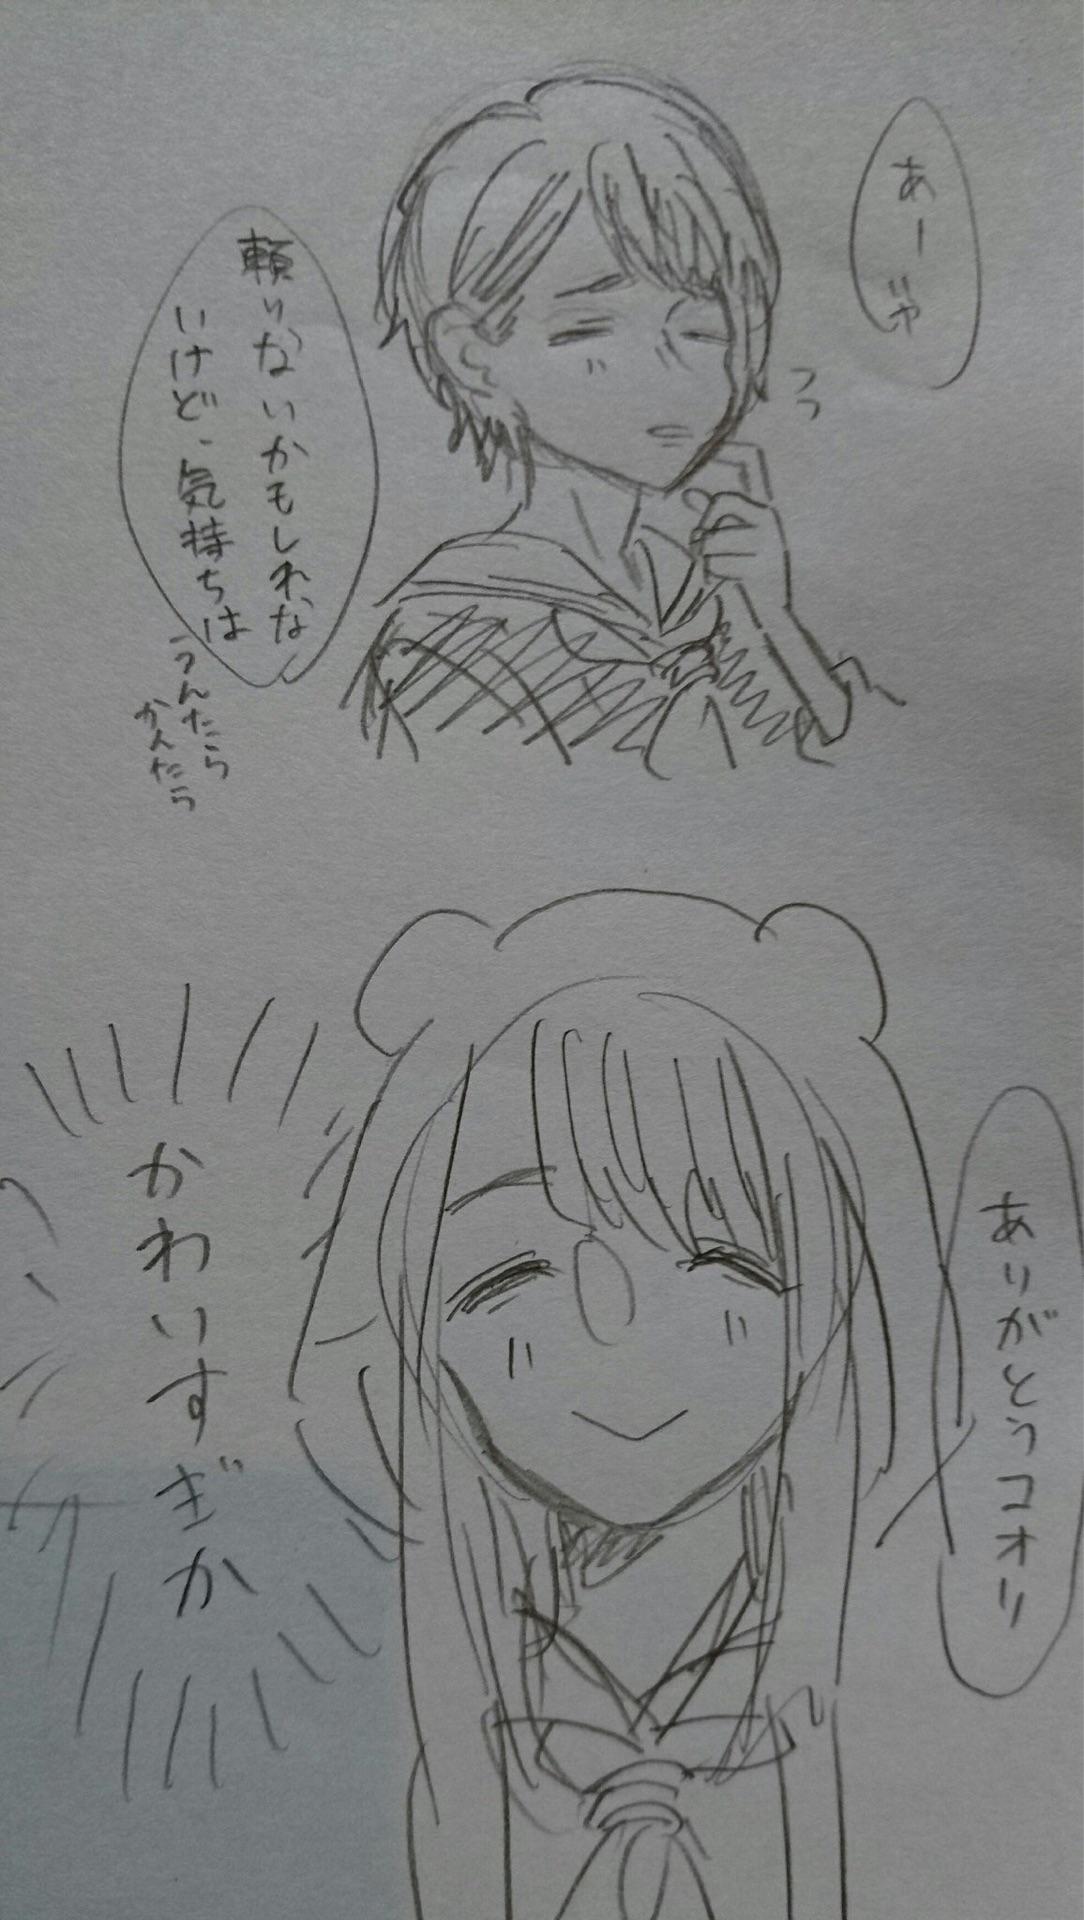 あーゆ
頼りないかもしれな
いけど、気持ちは
うんたら
かんたら
ありがとうコオリ
かわいすぎか